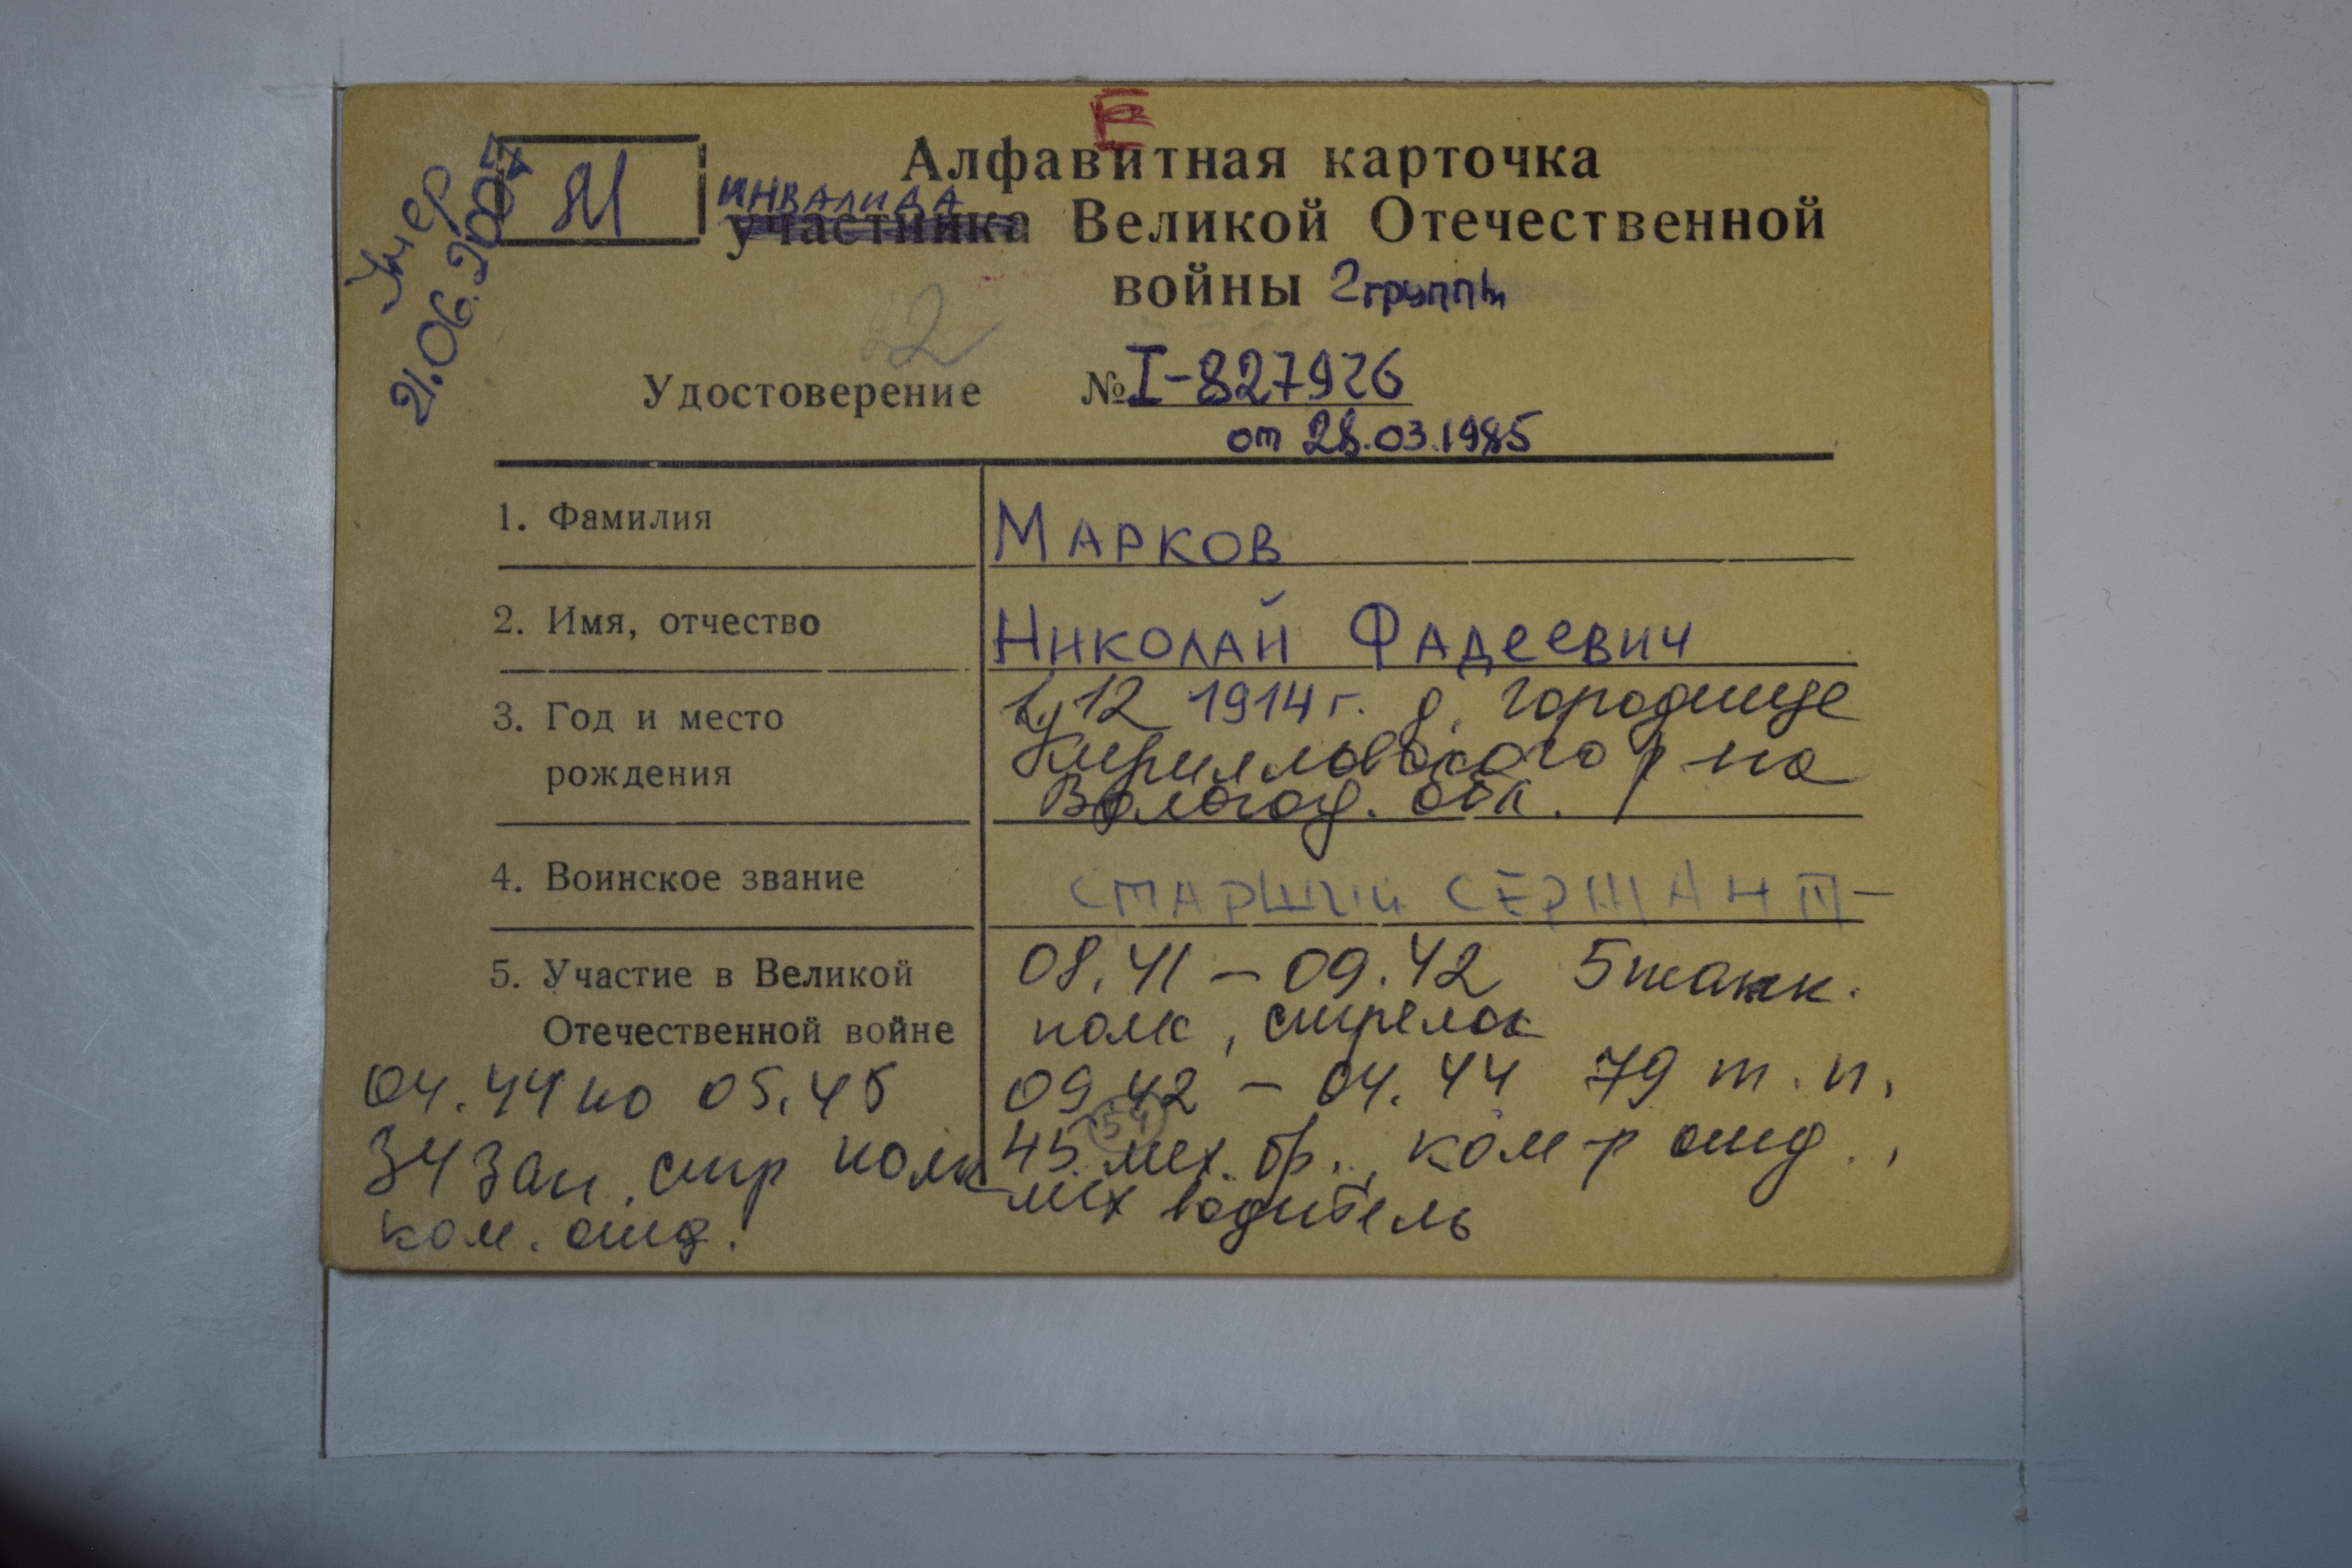 Е
Алфавитная карточка
М
умер
21.06.2007
инвалида
участника Великой Отечественной
войны 2 группы
Удостоверение № I-827926
от 28.03.1985
1. Фамилия МАРКОВ
2. Имя, отчество НИКОЛАЙ ФАДЕЕВИЧ
3. Год и место 12 1914 г. д. Городище
рождения Кирилловского р на
Вологод. обл.
4. Воинское звание СТАРШИЙ СЕРЖАНТ-
5. Участие в Великой 08.41 – 09.42 5 танк.
Отечественной войне полк, стрелок
09.42 – 04.44 79 т.п.
54
45 мех. бр., ком-р отд.,
мех водитель
04.44 по 05.45
34 зап. стр полк
ком. отд.